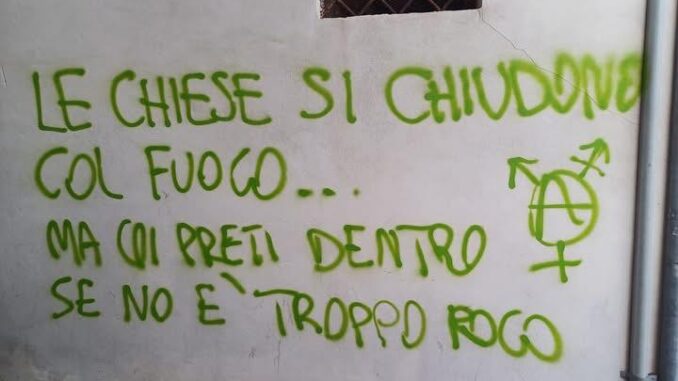 LE CHIESE SI CHIUDONO
COL FUOCO...
MA COI PRETI DENTRO
SE NO È TROPPO POCO